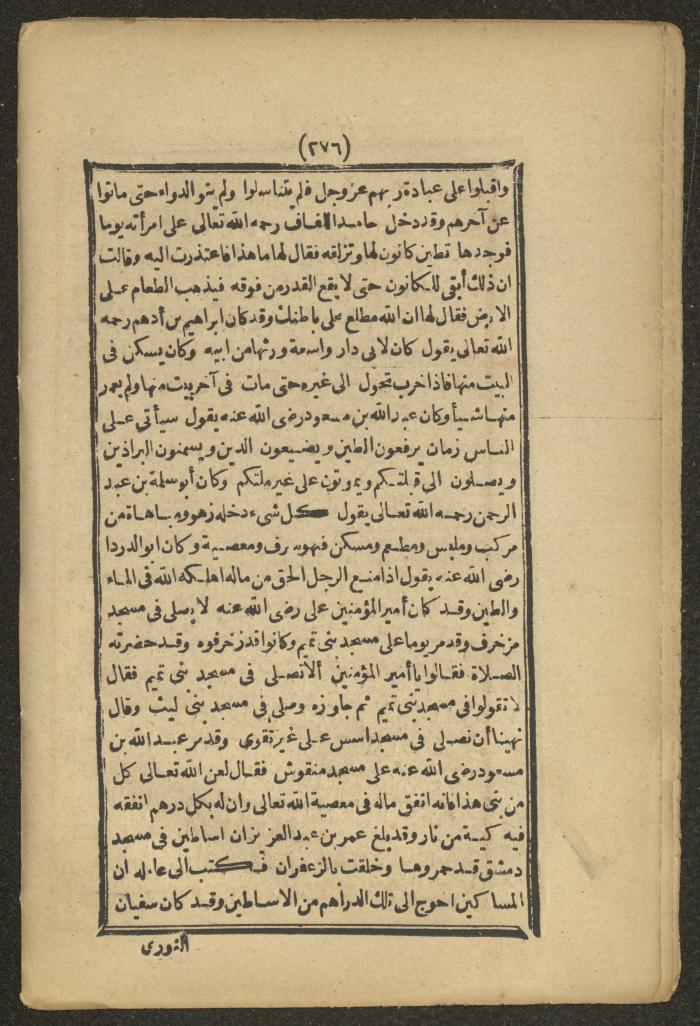 (٢٧٦)
واقبلوا على عبادة ربهم عز وجل فلم يتناسلوا ولم يتو الدواء حتى ماتوا
عن آخرهم وقد دخل حامد اللفاف رحمه الله تعالى على امرأته يوما
فوجدها تطين كانون لها وتزلقه فقال لها ما هذا فاعتذرت اليه وقالت
ان ذلك أبقى للكانون حتى لا يقع القدر من فوقه فيذهب الطعام على
الارض فقال لها ان الله مطلع على باطنك وقد كان ابراهيم بن أدهم رحمه
الله تعالى يقول كان لابى دار واسعة ورثها من ابيه وكان يسكن فى
البيت منها فاذا خرب تحول الى غيره حتى مات فى آخر بيت منها ولم يعمر
منها شيأ وكان عبد الله بن مسعود رضى الله عنه يقول سيأتى على
الناس زمان يرفعون الطين ويضيعون الدين ويسمنون البراذين
ويصلون الى قبلتكم ويموتون على غير ملتكم وكان أبو سلمة بن عبد
الرحمن رحمه الله تعالى يقول كل شىء دخله زهو ومباهاة من
مركب وملبس ومطعم ومسكن فهو سرف ومعصية وكان ابو الدردا
رضى الله عنه يقول اذا منع الرجل الحق من ماله اهلكه الله فى الماء
والطين وقد كان أمير المؤمنين على رضى الله عنه لا يصلى فى مسجد
مزخرف وقد مر يوما على مسجد بنى تميم وكانوا قد زخرفوه وقد حضرته
الصلاة فقالوا يا أمير المؤمنين ألا تصلى فى مسجد بنى تميم فقال
لا تقولوا فى مسجد بنى تميم ثم جاوزه وصلى فى مسجد بنى ليث وقال
نهينا أن نصلى فى مسجد اسس على غير تقوى وقد مر عبد الله بن
مسعود رضى الله عنه على مسجد منقوش فقال لعن الله تعالى كل
من بنى هذا فانه انفق ماله فى معصية الله تعالى وان له بكل درهم انفقه
فيه كية من نار وقد بلغ عمر بن عبد العزيز ان اساطين فى مسجد
دمشق قد حمروها وخلقت بالزعفران فكتب الى عامله ان
المساكين احوج الى تلك الدراهم من الاساطين وقد كان سفيان
الثورى